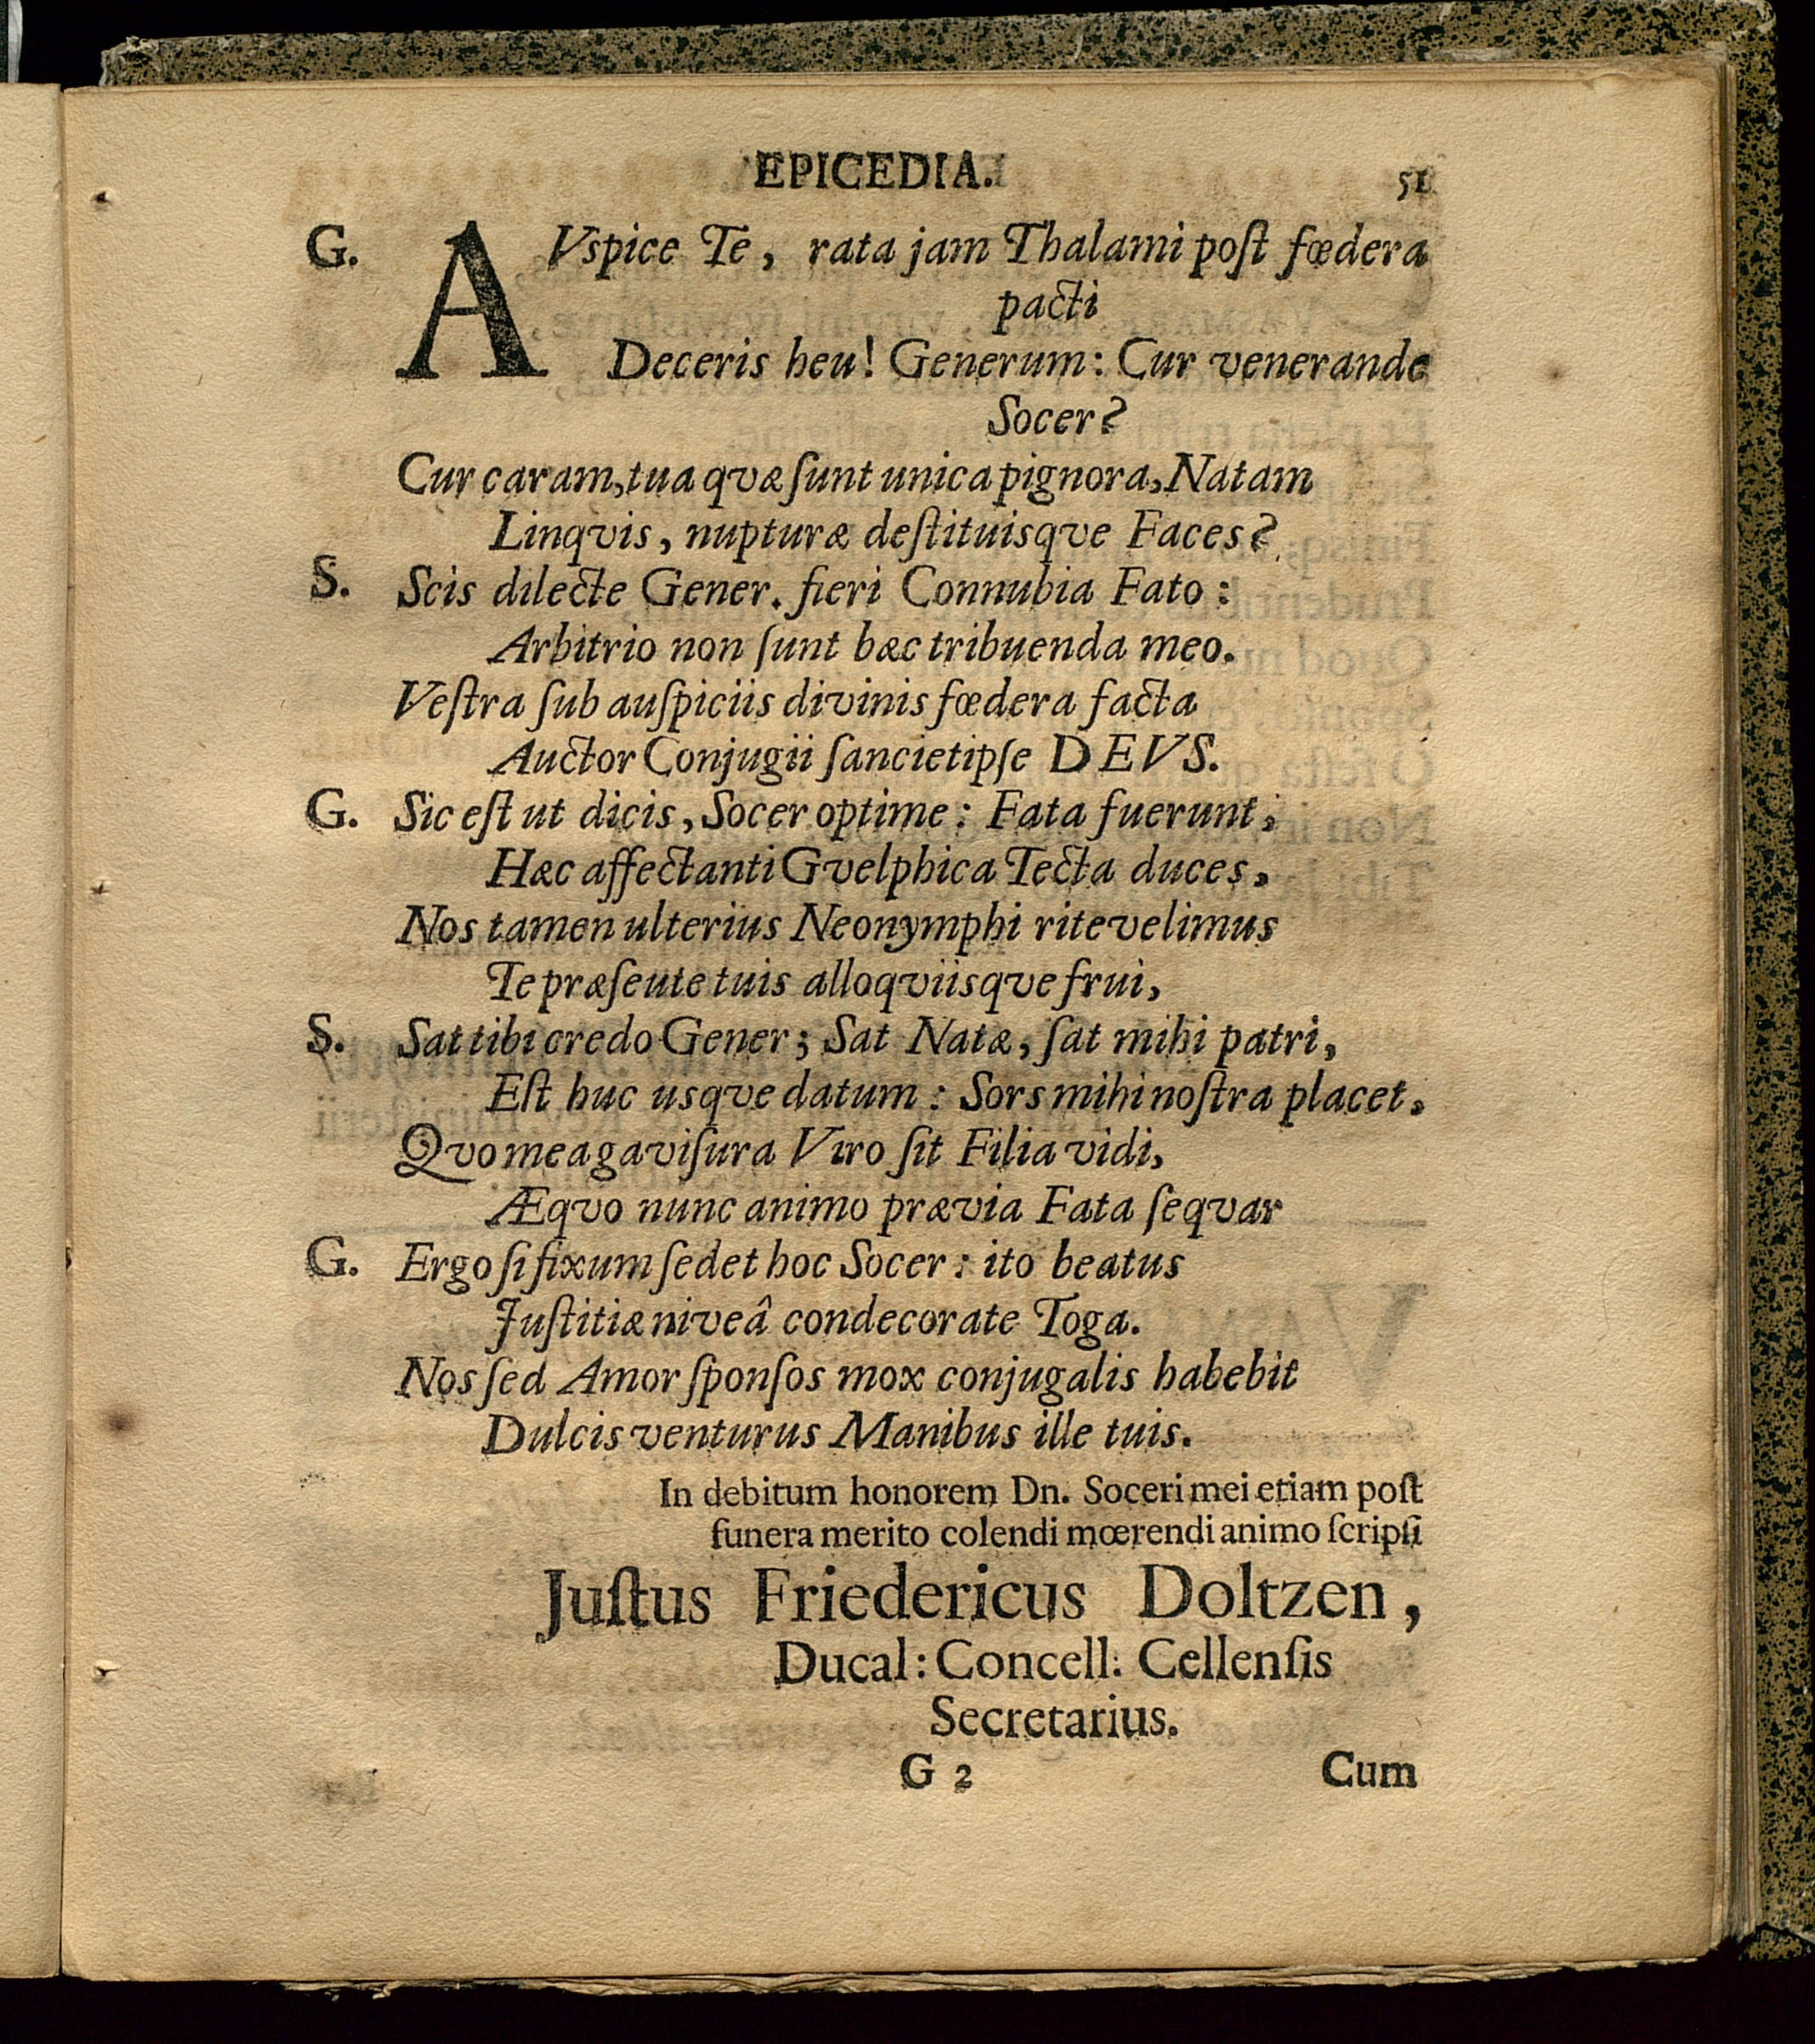 EPICEDIA. 51
G. AVspice Te, rata jam Thalami poſt fœdera
pacti
Deceris heu! Generum: Cur venerande
Socer?
Cur caram, tua qvæ ſunt unica pignora, Natam
Linqvis, nupturæ deſtituisqve Faces?
S. Scis dilecte Gener. fieri Connubia Fato:
Arbitrio non ſunt hæc tribuenda meo.
Veſtra ſub auſpiciis divinis fœdera facta
Auctor Conjugii ſanciet ipſe DEVS.
G. Sic eſt ut dicis, Socer optime: Fata fuerunt,
Hæc affectanti Gvelphica Tecta duces,
Nos tamen ulterius Neonymphi rite velimus
Te præſeute tuis alloqviisqve frui,
S. Sat tibi credo Gener; Sat Natæ, ſat mihi patri,
Eſt huc usqve datum: Sors mihi noſtra placet.
Qvo mea gaviſura Viro ſit Filia vidi,
Æqvo nunc animo prævia Fata ſeqvar
G. Ergo ſi fixum ſedet hoc Socer: ito beatus
Juſtitiæ niveâ condecorate Toga.
Nos ſed Amor ſponſos mox conjugalis habebit
Dulcis venturus Manibus ille tuis.
In debitum honorem Dn. Soceri mei etiam poſt
funera merito colendi mœrendi animo ſcripſi
Juſtus Friedericus Doltzen,
Ducal: Concell: Cellenſis
Secretarius.
G 2 Cum